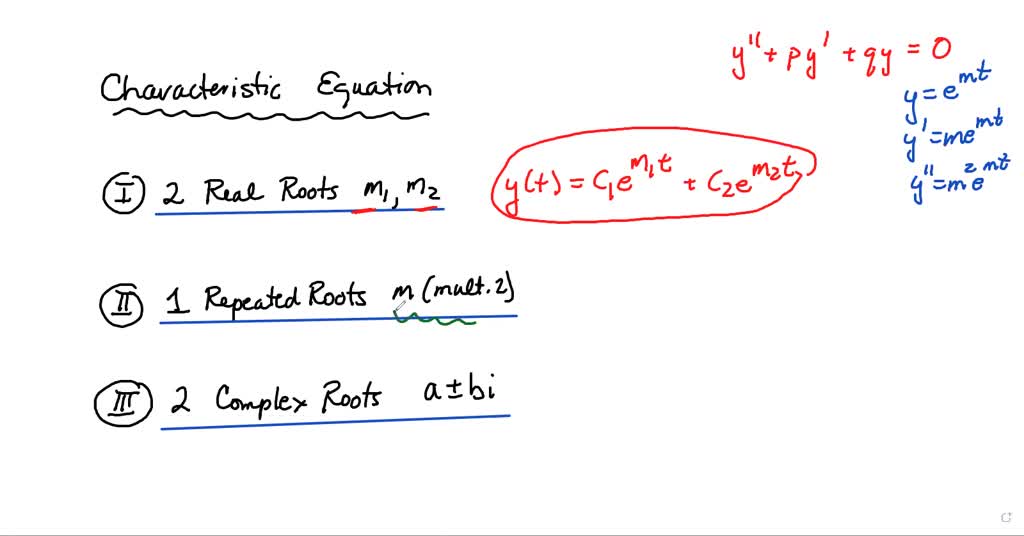 y'' + py' + qy = 0
Characteristic Equation
y = e^{mt}
y' = me^{mt}
y'' = m^2e^{mt}
Ⓘ 2 Real Roots m₁, m₂
y(t) = C₁e^{m₁t} + C₂e^{m₂t}
II 1 Repeated Roots m (mult. 2)
III 2 Complex Roots a ± bi